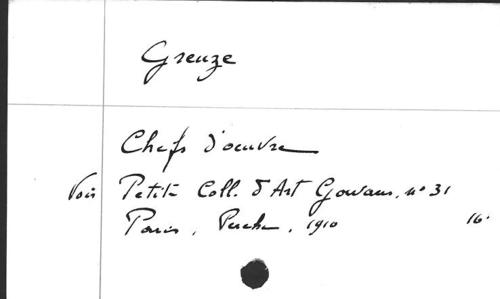 Greuze
Chefs d'oeuvre
Voir Petite Coll. d'Art Gowans, n° 31
Paris, Perche, 1910 16°